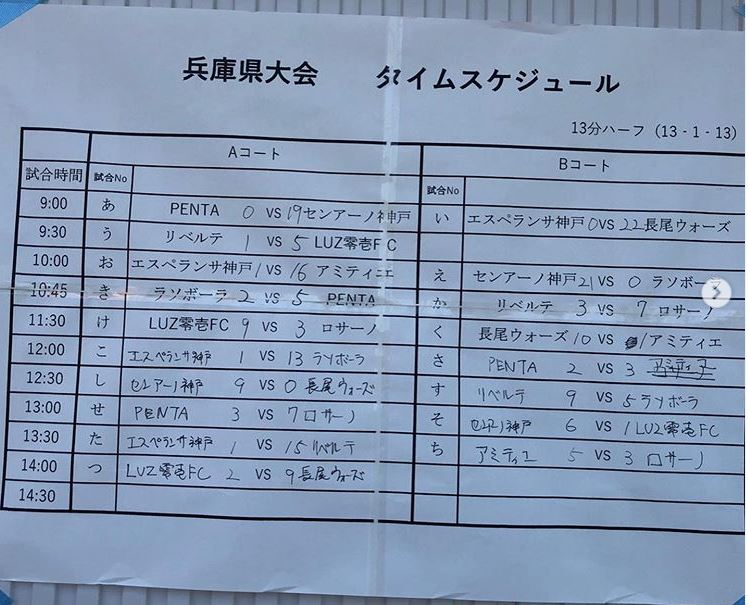 兵庫県大会 タイムスケジュール
13分ハーフ (13-1-13)
Aコート Bコート
試合時間 試合No 試合No
9:00 あ PENTA 0 VS 19 センアーノ神戸 い エスペランサ神戸 0 VS 22 長尾ウォーズ
9:30 う リベルテ 1 VS 5 LUZ零壱FC
10:00 お エスペランサ神戸 1 VS 16 アミティエ え センアーノ神戸 21 VS 0 ラソボーラ
10:45 き ラソボーラ 2 VS 5 PENTA か リベルテ 3 VS 7 ロサーノ
11:30 け LUZ零壱FC 9 VS 3 ロサーノ く 長尾ウォーズ 10 VS 1 アミティエ
12:00 こ エスペランサ神戸 1 VS 13 ラソボーラ さ PENTA 2 VS 3 アミティエ
12:30 し センアーノ神戸 9 VS 0 長尾ウォーズ す リベルテ 9 VS 5 ラソボーラ
13:00 せ PENTA 3 VS 7 ロサーノ そ センアーノ神戸 6 VS 1 LUZ零壱FC
13:30 た エスペランサ神戸 1 VS 15 リベルテ ち アミティエ 5 VS 3 ロサーノ
14:00 つ LUZ零壱FC 2 VS 9 長尾ウォーズ
14:30